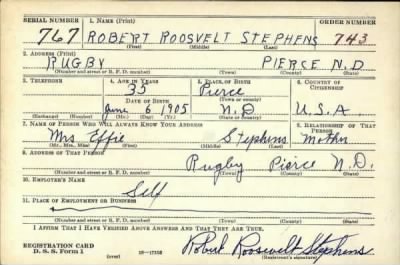 SERIAL NUMBER 1. NAME (Print)
767 ROBERT ROOSVELT STEPHENS 743
(First) (Middle) (Last)
2. ADDRESS (Print)
RUGBY PIERCE N.D.
(Number and street or R. F. D. number) (Town) (County) (State)
3. TELEPHONE 4. AGE IN YEARS 5. PLACE OF BIRTH 6. COUNTRY OF CITIZENSHIP
35 Pierce
DATE OF BIRTH (Town or county)
June 6 1905 N.D U.S.A.
(Exchange) (Number) (Mo.) (Day) (Yr.) (State or country)
7. NAME OF PERSON WHO WILL ALWAYS KNOW YOUR ADDRESS 8. RELATIONSHIP OF THAT PERSON
Mrs Effie Stephens Mother
(Mr., Mrs., Miss) (First) (Middle) (Last)
9. ADDRESS OF THAT PERSON
Rugby Pierce N.D.
(Number and street or R. F. D. number) (Town) (County) (State)
10. EMPLOYER'S NAME
Self
11. PLACE OF EMPLOYMENT OR BUSINESS
(Number and street or R. F. D. number) (Town) (County) (State)
I AFFIRM THAT I HAVE VERIFIED ABOVE ANSWERS AND THAT THEY ARE TRUE.
REGISTRATION CARD
D. S. S. Form 1 (over) 16—17105 Robert Roosevelt Stephens
(Registrant's signature)